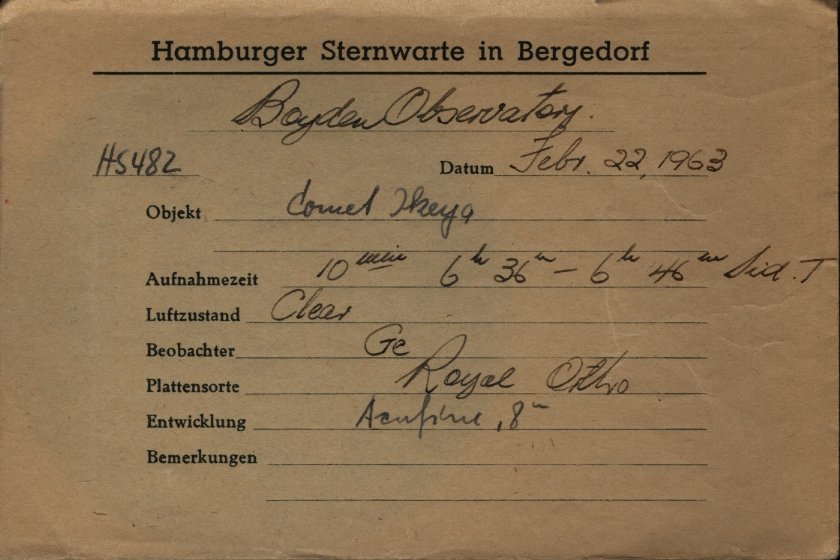 Hamburger Sternwarte in Bergedorf
Boyden Observatory.
HS482 Datum Febr. 22, 1963
Objekt Comet Ikeya
Aufnahmezeit 10 min 6h 36m – 6h 46m Sid. T
Luftzustand Clear
Beobachter Ge
Plattensorte Royal Ortho
Entwicklung , 8m
Bemerkungen